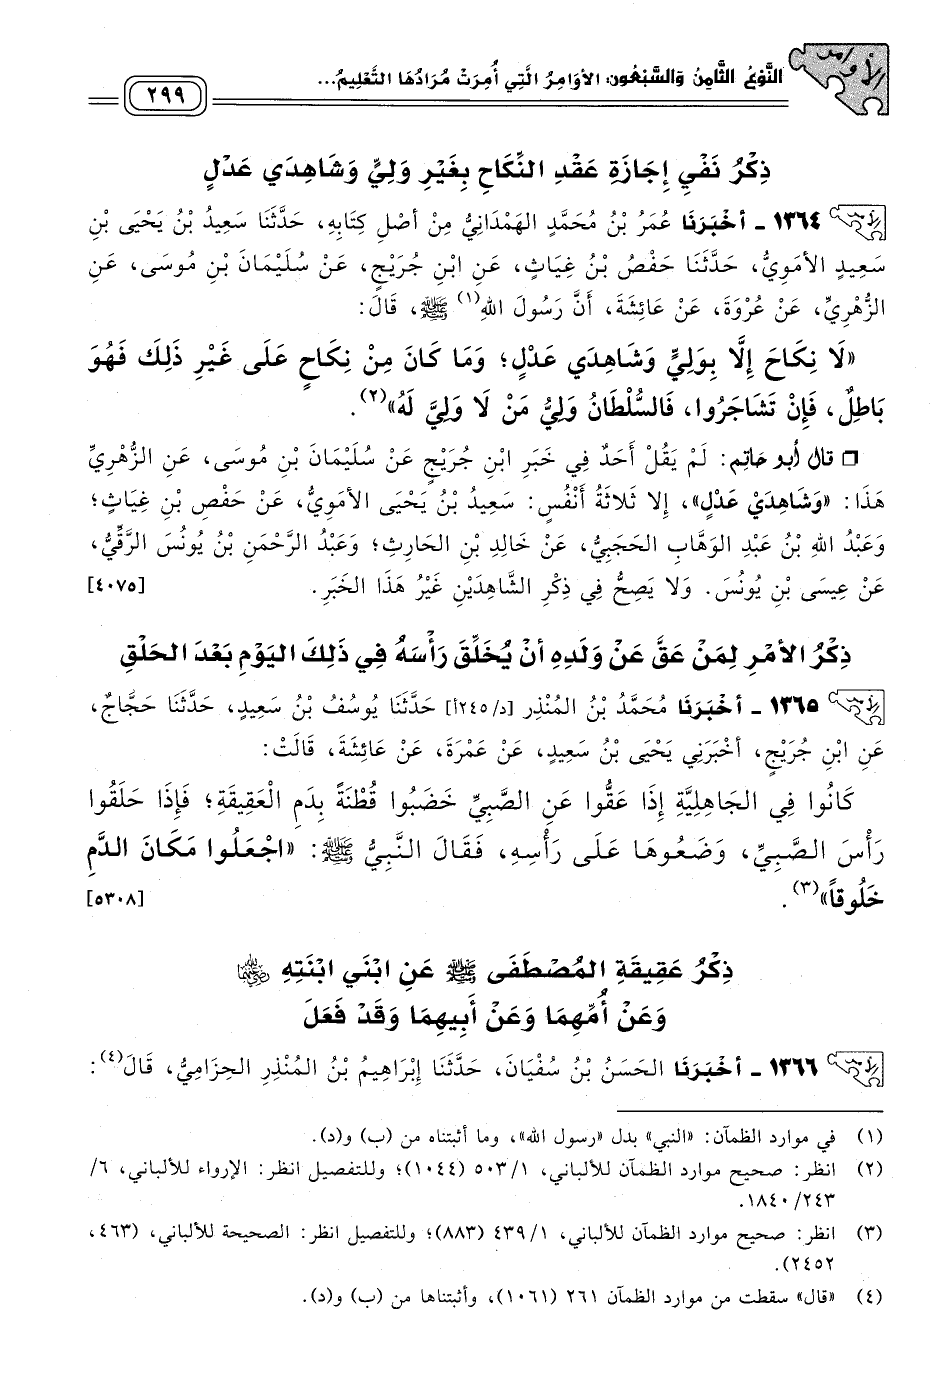 الأوامر
النَّوْعُ الثَّامِنُ وَالسَّبْعُونَ: الأَوَامِرُ الَّتِي أُمِرَتْ مُرَادُهَا التَّعْلِيمُ...
٢٩٩
ذِكْرُ نَفْيِ إِجَازَةِ عَقْدِ النِّكَاحِ بِغَيْرِ وَلِيٍّ وَشَاهِدَي عَدْلٍ
١٣٦٤ - أَخْبَرَنَا عُمَرُ بْنُ مُحَمَّدٍ الهَمْدَانِيُّ مِنْ أَصْلِ كِتَابِهِ، حَدَّثَنَا سَعِيدُ بْنُ يَحْيَى بْنِ
سَعِيدٍ الأُمَوِيُّ، حَدَّثَنَا حَفْصُ بْنُ غِيَاثٍ، عَنِ ابْنِ جُرَيْجٍ، عَنْ سُلَيْمَانَ بْنِ مُوسَى، عَنِ
الزُّهْرِيِّ، عَنْ عُرْوَةَ، عَنْ عَائِشَةَ، أَنَّ رَسُولَ اللهِ(١) ﷺ، قَالَ:
«لَا نِكَاحَ إِلَّا بِوَلِيٍّ وَشَاهِدَي عَدْلٍ؛ وَمَا كَانَ مِنْ نِكَاحٍ عَلَى غَيْرِ ذَلِكَ فَهُوَ
بَاطِلٌ، فَإِنْ تَشَاجَرُوا، فَالسُّلْطَانُ وَلِيُّ مَنْ لَا وَلِيَّ لَهُ»(٢).
❒ قال أبو حاتم: لَمْ يَقُلْ أَحَدٌ فِي خَبَرِ ابْنِ جُرَيْجٍ عَنْ سُلَيْمَانَ بْنِ مُوسَى، عَنِ الزُّهْرِيِّ
هَذَا: «وَشَاهِدَيْ عَدْلٍ»، إِلا ثَلاثَةُ أَنْفُسٍ: سَعِيدُ بْنُ يَحْيَى الأُمَوِيُّ، عَنْ حَفْصِ بْنِ غِيَاثٍ؛
وَعَبْدُ اللهِ بْنُ عَبْدِ الوَهَّابِ الحَجَبِيُّ، عَنْ خَالِدِ بْنِ الحَارِثِ؛ وَعَبْدُ الرَّحْمَنِ بْنُ يُونُسَ الرَّقِّيُّ،
عَنْ عِيسَى بْنِ يُونُسَ. وَلا يَصِحُّ فِي ذِكْرِ الشَّاهِدَيْنِ غَيْرُ هَذَا الخَبَرِ. [٤٠٧٥]
ذِكْرُ الأَمْرِ لِمَنْ عَقَّ عَنْ وَلَدِهِ أَنْ يُخَلِّقَ رَأْسَهُ فِي ذَلِكَ اليَوْمِ بَعْدَ الحَلْقِ
١٣٦٥ - أَخْبَرَنَا مُحَمَّدُ بْنُ المُنْذِرِ [د/٢٤٥أ] حَدَّثَنَا يُوسُفُ بْنُ سَعِيدٍ، حَدَّثَنَا حَجَّاجٌ،
عَنِ ابْنِ جُرَيْجٍ، أَخْبَرَنِي يَحْيَى بْنُ سَعِيدٍ، عَنْ عَمْرَةَ، عَنْ عَائِشَةَ، قَالَتْ:
كَانُوا فِي الجَاهِلِيَّةِ إِذَا عَقُّوا عَنِ الصَّبِيِّ خَضَبُوا قُطْنَةً بِدَمِ الْعَقِيقَةِ؛ فَإِذَا حَلَقُوا
رَأْسَ الصَّبِيِّ، وَضَعُوهَا عَلَى رَأْسِهِ، فَقَالَ النَّبِيُّ ﷺ: «اجْعَلُوا مَكَانَ الدَّمِ
خَلُوقاً»(٣). [٥٣٠٨]
ذِكْرُ عَقِيقَةِ المُصْطَفَى ﷺ عَنِ ابْنَي ابْنَتِهِ رضي الله عنهما
وَعَنْ أُمِّهِمَا وَعَنْ أَبِيهِمَا وَقَدْ فَعَلَ
١٣٦٦ - أَخْبَرَنَا الحَسَنُ بْنُ سُفْيَانَ، حَدَّثَنَا إِبْرَاهِيمُ بْنُ المُنْذِرِ الحِزَامِيُّ، قَالَ(٤):
(١) في موارد الظمآن: «النبي» بدل «رسول الله»، وما أثبتناه من (ب) و(د).
(٢) انظر: صحيح موارد الظمآن للألباني، ٥٠٣/١ (١٠٤٤)؛ وللتفصيل انظر: الإرواء للألباني، ٦/
١٨٤٠/٢٤٣.
(٣) انظر: صحيح موارد الظمآن للألباني، ٤٣٩/١ (٨٨٣)؛ وللتفصيل انظر: الصحيحة للألباني، (٤٦٣،
٢٤٥٢).
(٤) «قال» سقطت من موارد الظمآن ٢٦١ (١٠٦١)، وأثبتناها من (ب) و(د).